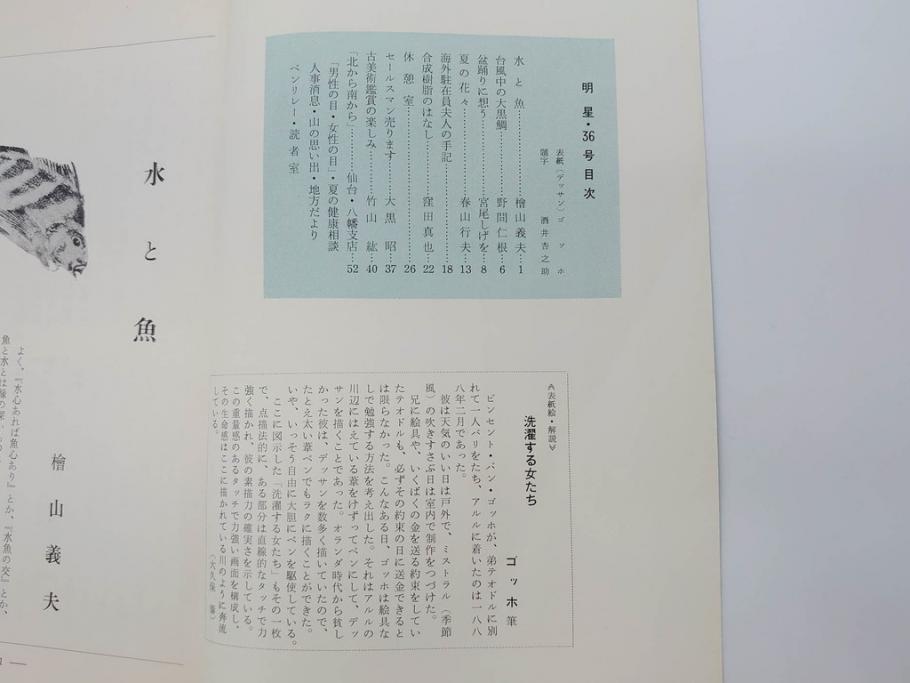 明　星・36 号 目 次
表紙（デッサン）ゴ　ッ　ホ
題字　酒 井 杏 之 助
水　と　魚……檜 山 義 夫…1
台風中の大黒鯛……野 間 仁 根…6
盆踊りに想う……宮尾しげを…8
夏 の 花 々……春 山 行 夫…13
海外駐在員夫人の手記……18
合成樹脂のはなし……窪 田 真 也…22
休　憩　室……26
セールスマン売ります……大 黒　昭…37
古美術鑑賞の楽しみ……竹 山　紘…40
「北から南から」……仙台・八幡支店…52
「男性の目・女性の目」・夏の健康相談
人事消息・山の思い出・地方だより
ペンリレー・読 者 室
≪表紙絵・解説≫
洗濯する女たち
ゴ ッ ホ 筆
ビンセント・バン・ゴッホが、弟テオドルに別
れて一人パリをたち、アルルに着いたのは一八八
八年二月であった。
彼は天気のいい日は戸外で、ミストラル（季節
風）の吹きすさぶ日は室内で制作をつづけた。
兄に絵具や、いくばくの金を送る約束をしてい
たテオドルも、必ずその約束の日に送金できると
は限らなかった。こんなある日、ゴッホは絵具な
しで勉強する方法を考え出した。それはアルルの
川辺にはえている葦をけずってペンにして、デッ
サンを描くことであった。オランダ時代から貧し
かった彼は、デッサンを数多く描いていたので、
たとえ太い葦ペンでもラクに描くことができた。
いや、いっそう自由に大胆にペンを駆使している。
ここに図示した「洗濯する女たち」もその一枚
で、点描法的に、ある部分は直線的なタッチで力
強く描かれ、彼の素描力の確実さを示している。
この重量感のあるタッチで力強い画面を構成し、
その生命感はここに描かれている川のように奔流
している。
（大久保
水 と 魚
檜 山 義 夫
よく、『水心あれば魚心あり』とか、『水魚の交』とか、
魚と水とは縁の深